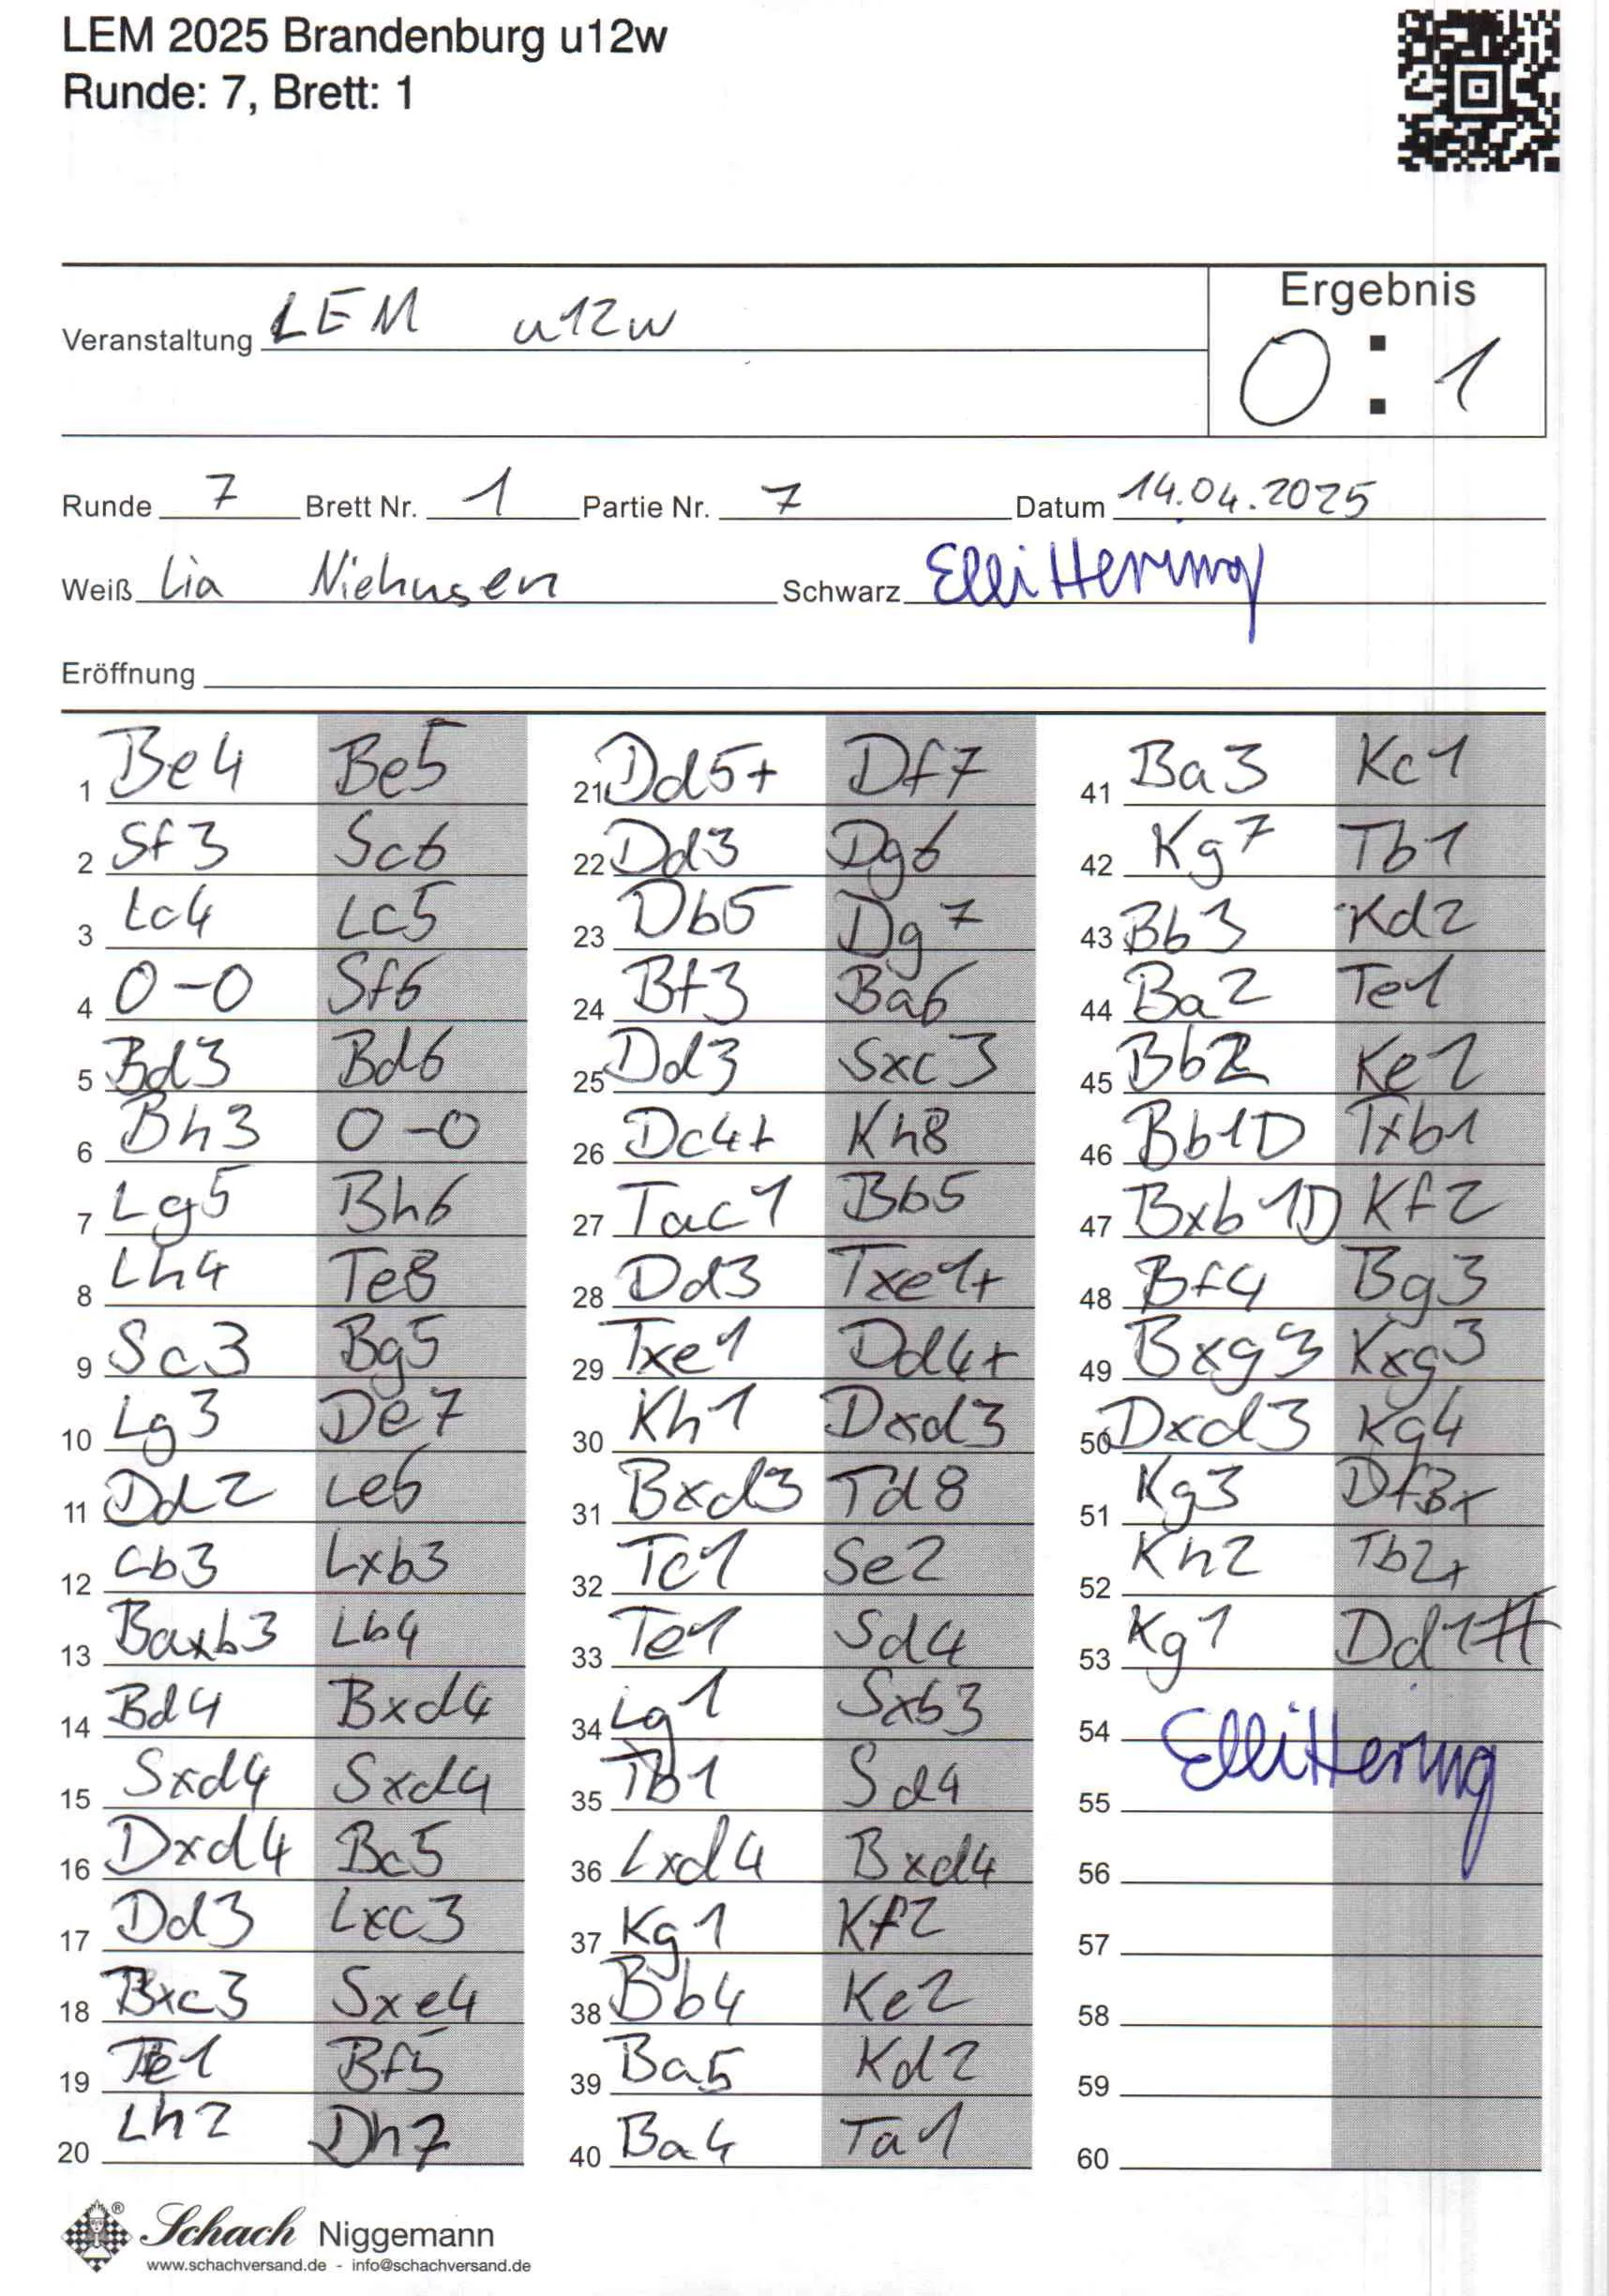 LEM 2025 Brandenburg u12w
Runde: 7, Brett: 1
Ergebnis
Veranstaltung LEM u12w
0 : 1
Runde 7 Brett Nr. 1 Partie Nr. 7 Datum 14.04.2025
Weiß Lia Niehusen Schwarz Elli Hering
Eröffnung
1 Be4 Be5
2 Sf3 Sc6
3 Lc4 Lc5
4 0-0 Sf6
5 Bd3 Bd6
6 Bh3 0-0
7 Lg5 Bh6
8 Lh4 Te8
9 Sc3 Bg5
10 Lg3 De7
11 Dd2 Le6
12 Lb3 Lxb3
13 Baxb3 Lb4
14 Bd4 Bxd4
15 Sxd4 Sxd4
16 Dxd4 Bc5
17 Dd3 Lxc3
18 Bxc3 Sxe4
19 Te1 Bf5
20 Lh2 Dh7
21 Dd5+ Df7
22 Dd3 Dg6
23 Db5 Dg7
24 Bf3 Ba6
25 Dd3 Sxc3
26 Dc4+ Kh8
27 Tac1 Bb5
28 Dd3 Txe1+
29 Txe1 Dd4+
30 Kh1 Dxd3
31 Bxd3 Td8
32 Tc1 Se2
33 Te1 Sd4
34 Lg1 Sxb3
35 Tb1 Sd4
36 Lxd4 Bxd4
37 Kg1 Kf2
38 Bb4 Ke2
39 Ba5 Kd2
40 Ba4 Ta1
41 Ba3 Kc1
42 Kg7 Tb1
43 Bb3 Kd2
44 Ba2 Te1
45 Bb2 Ke2
46 Bb1D Txb1
47 Bxb1D Kf2
48 Bf4 Bg3
49 Bxg3 Kxg3
50 Dxd3 Kg4
51 Kg3 Df3+
52 Kh2 Tb2+
53 Kg1 Dd1#
54 Elli Hering
55
56
57
58
59
60
Schach Niggemann
www.schachversand.de - info@schachversand.de